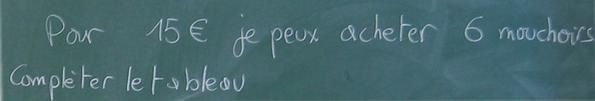 Pour 15 € je peux acheter 6 mouchoirs
Compléter le tableau